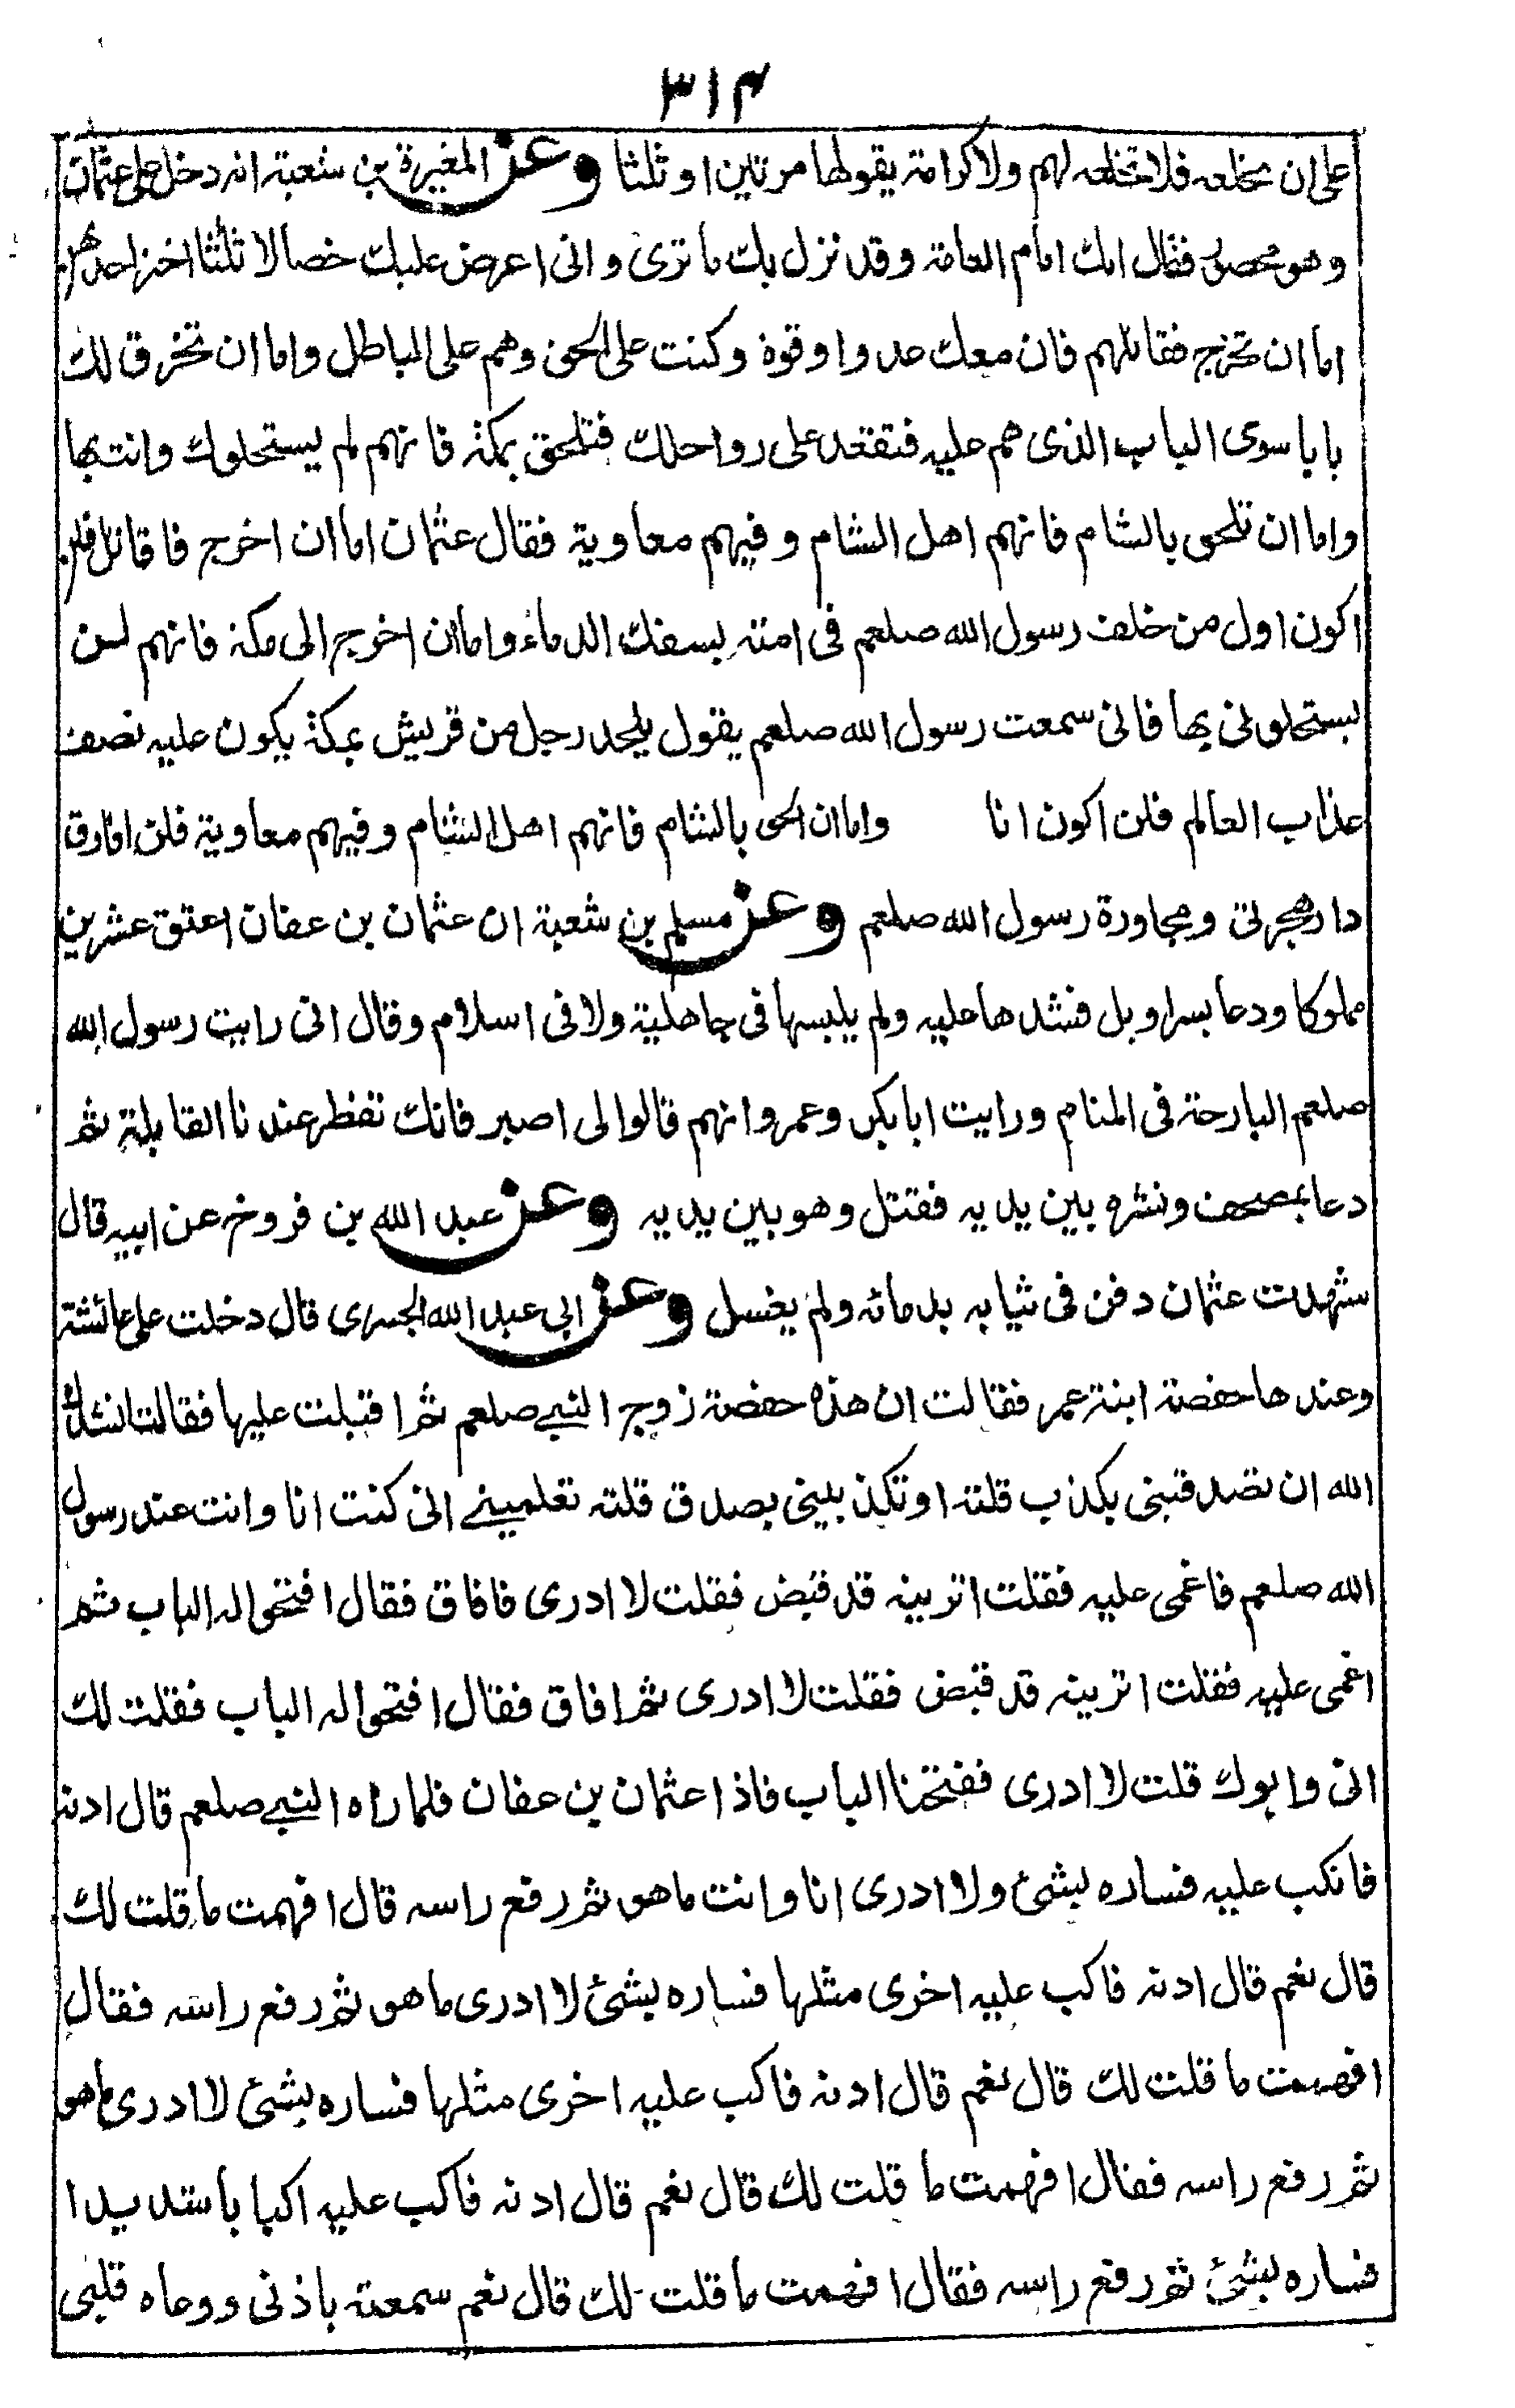 ٣١٤
على ان تخلعه فلا تخلعه لهم ولا كرامة يقولها مرتين او ثلثا وعن المغيرة بن شعبة انه دخل على عثمان
وهو محصور فقال انك امام العامة وقد نزل بك ما ترى وانى اعرض عليك خصالا ثلثا اختر احدهن
اما ان تخرج فقاتلهم فان معك عددا وقوة وكنت على الحق وهم على الباطل واما ان تخرق لك
بابا سوى الباب الذى هم عليه فتقعد على رواحلك فتلحق بمكة فانهم لم يستحلوك وانت بها
واما ان تلحق بالشام فانهم اهل الشام وفيهم معاوية فقال عثمان اما ان اخرج فاقاتل فلن
اكون اول من خلف رسول الله صلعم فى امته بسفك الدماء واما ان اخرج الى مكة فانهم لن
يستحلونى بها فانى سمعت رسول الله صلعم يقول يلحد رجل من قريش بمكة يكون عليه نصف
عذاب العالم فلن اكون انا واما ان الحق بالشام فانهم اهل الشام وفيهم معاوية فلن افارق
دار هجرتى ومجاورة رسول الله صلعم وعن مسلم بن شعبة ان عثمان بن عفان اعتق عشرين
مملوكا ودعا بسراويل فشدها عليه ولم يلبسها فى جاهلية ولا فى اسلام وقال انى رايت رسول الله
صلعم البارحة فى المنام ورايت ابا بكر وعمر وانهم قالوا لى اصبر فانك تفطر عندنا القابلة ثم
دعا بمصحف ونشره بين يديه فقتل وهو بين يديه وعن عبد الله بن فروخ عن ابيه قال
شهدت عثمان دفن فى ثيابه بدمائه ولم يغسل وعن ابى عبد الله الجسرى قال دخلت على عائشة
وعندها حفصة ابنة عمر فقالت ان هذه حفصة زوج النبى صلعم ثم اقبلت عليها فقالت انشدك
الله ان تصدقينى بكذب قلته او تكذبينى بصدق قلته تعلمينى انى كنت انا وانت عند رسول
الله صلعم فاغمى عليه فقلت اترينه قد قبض فقلت لا ادرى فافاق فقال افتحوا له الباب ثم
اغمى عليه فقلت اترينه قد قبض فقلت لا ادرى ثم افاق فقال افتحوا له الباب فقلت لك
ابى وابوك قلت لا ادرى ففتحنا الباب فاذا عثمان بن عفان فلما راه النبى صلعم قال ادنه
فانكب عليه فساره بشئ ولا ادرى انا وانت ما هو ثم رفع راسه قال افهمت ما قلت لك
قال نعم قال ادنه فاكب عليه اخرى مثلها فساره بشئ لا ادرى ما هو ثم رفع راسه فقال
افهمت ما قلت لك قال نعم قال ادنه فاكب عليه اخرى مثلها فساره بشئ لا ادرى ما هو
ثم رفع راسه فقال افهمت ما قلت لك قال نعم قال ادنه فاكب عليه اكبابا شديدا
فساره بشئ ثم رفع راسه فقال افهمت ما قلت لك قال نعم سمعته باذنى ووعاه قلبى